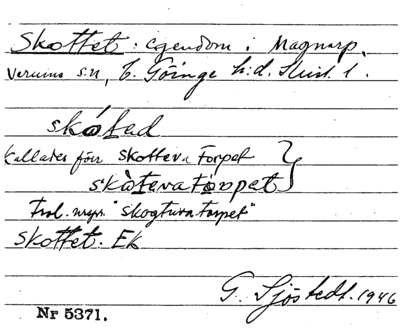 Skottet: egendom i Magnarp,
Verums s:n, V. Göinge h:d. Skist. 1.
skó̵tad
kallades förr skottera torpet
skòteratórpet
Trol. urspr. "skogtuvatorpet"
Skottet. EK
G. Sjöstedt. 1946
Nr 5371.